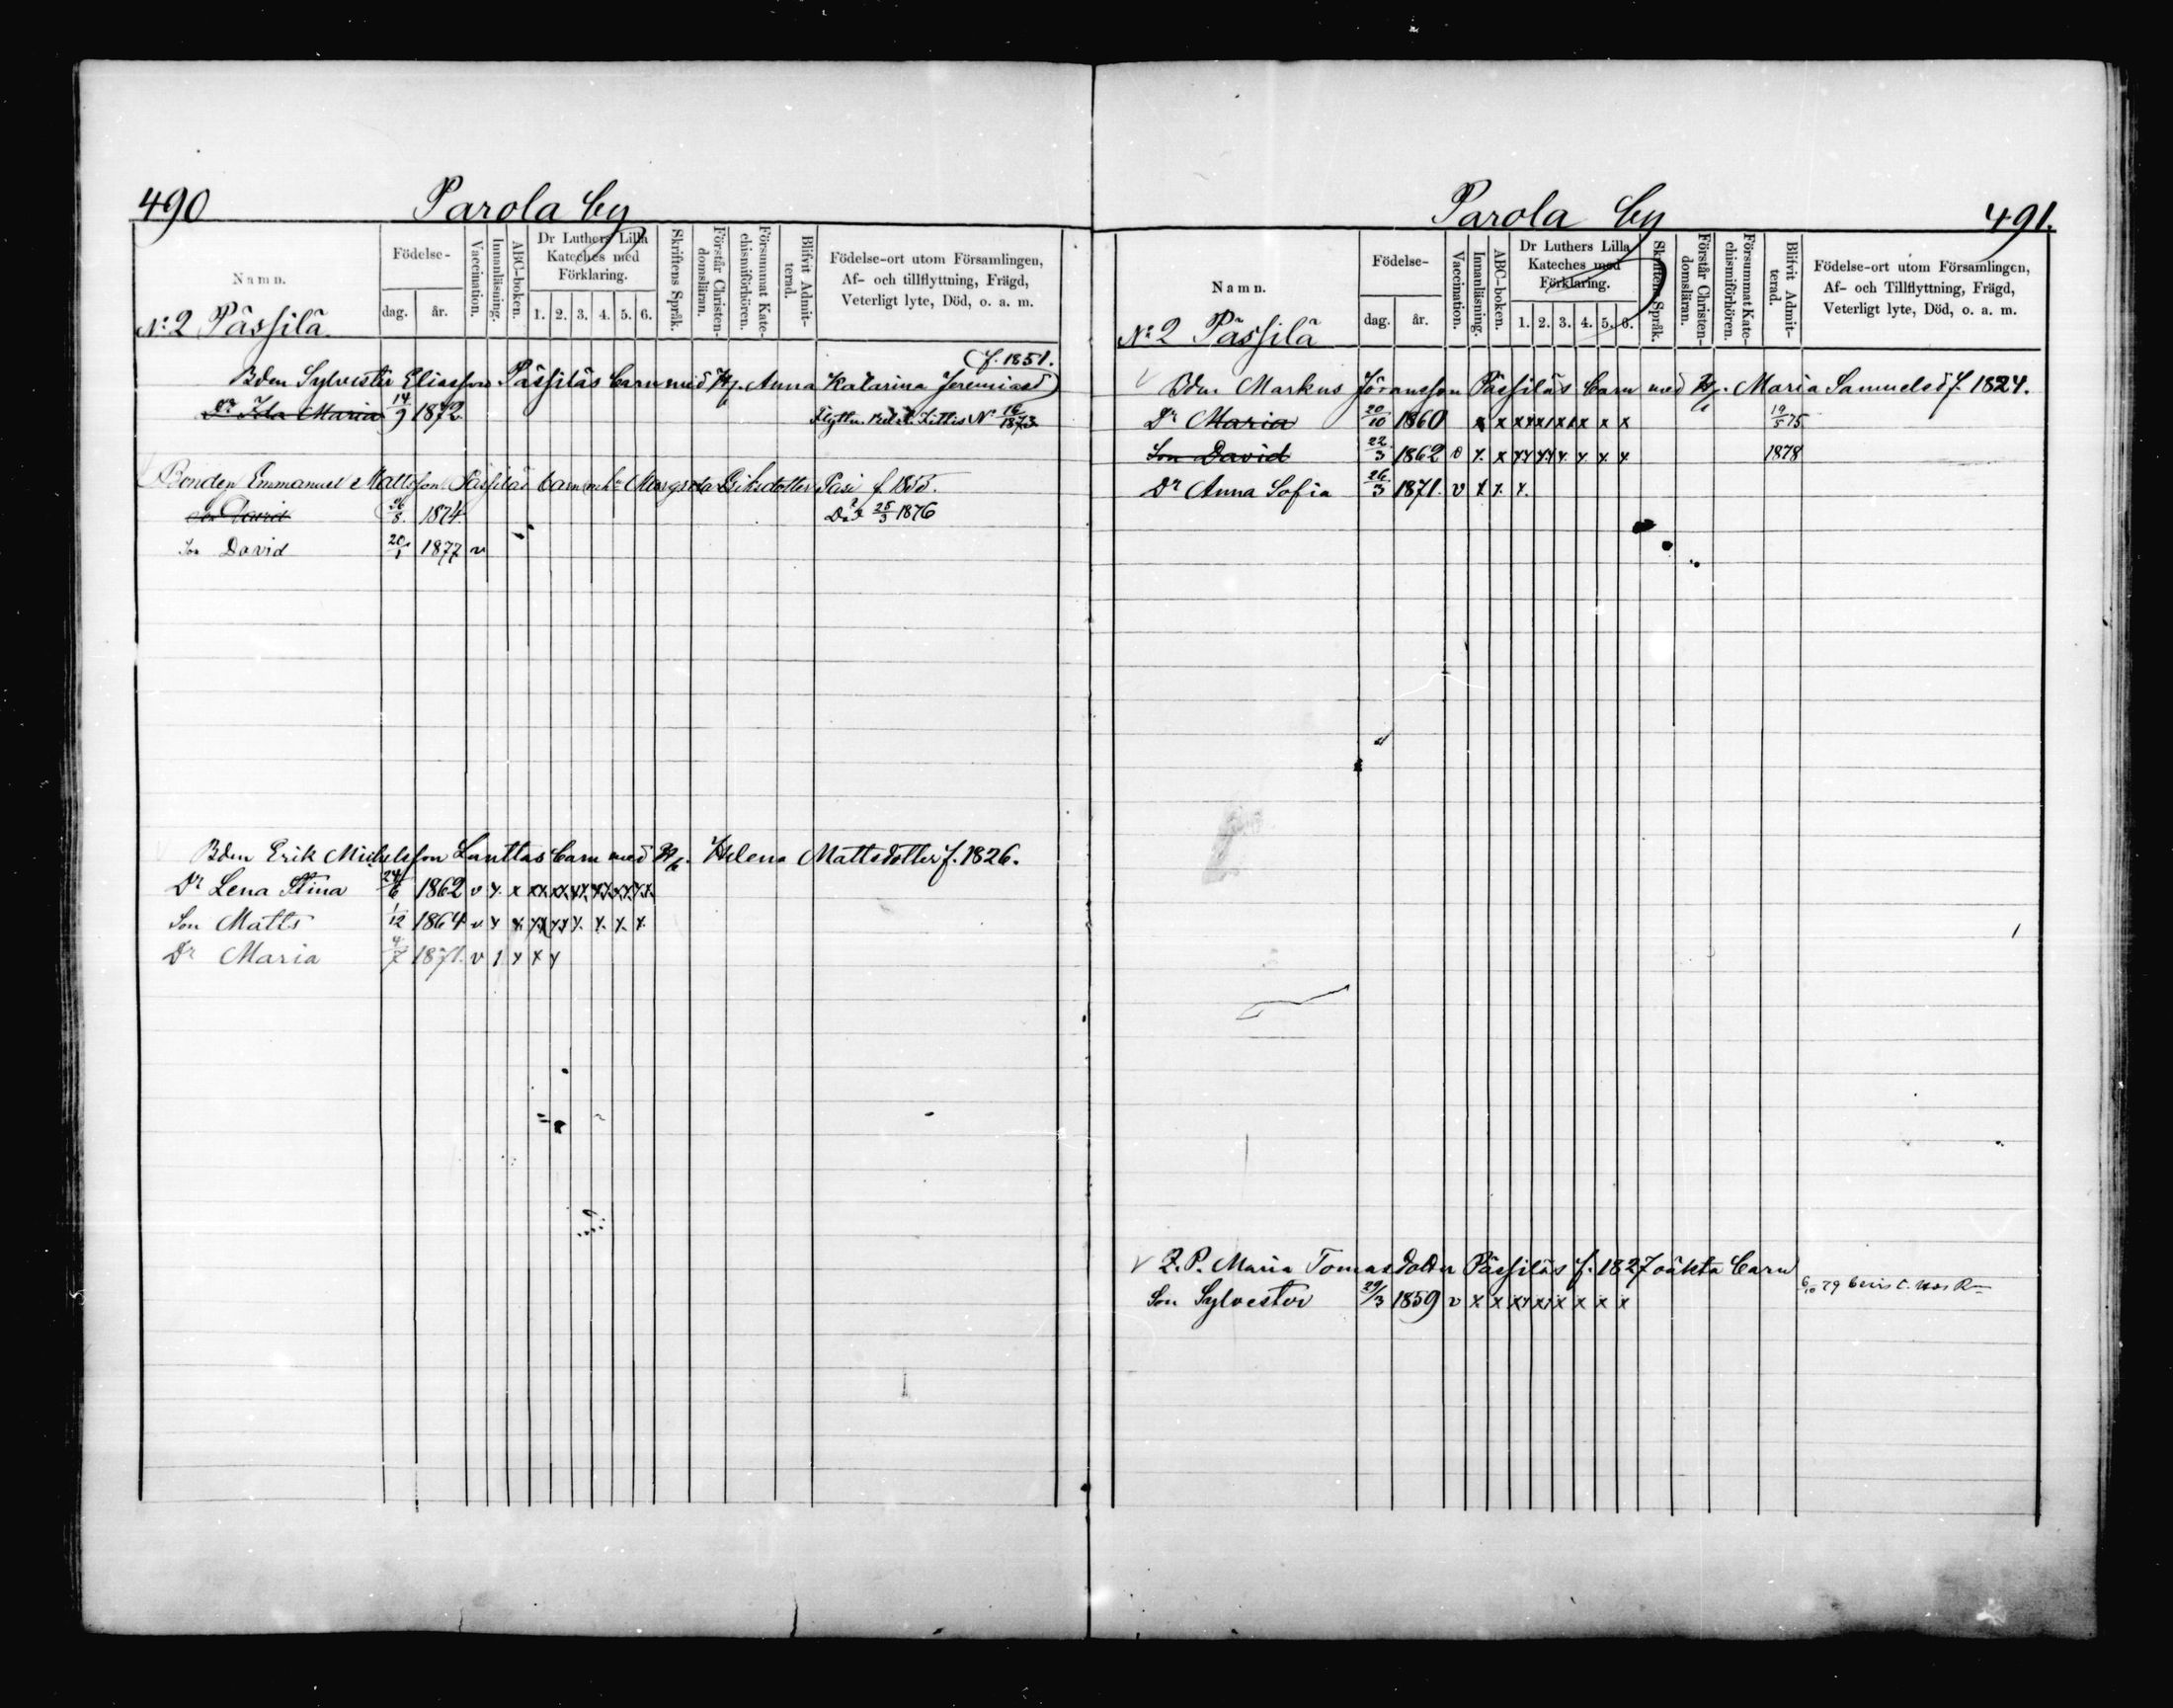 490 Parola by
Namn.
Födelse-
dag. år.
Vaccination.
Innanläsning.
ABC-boken.
Dr Luthers Lilla Kateches med Förklaring.
1. 2. 3. 4. 5. 6.
Skriftens Språk.
Förstår Christendomsläran.
Försummat Katechismiförhören.
Blifvit Admitterad.
Födelse-ort utom Församlingen,
Af- och tillflyttning, Frägd,
Veterligt lyte, Död, o. a. m.
No 2 Pässilä
(f. 1851.
Bden Sylvester Eliasson Pässiläs barn med H. Anna Katarina Jeremiasd)
Dr Ida Maria 14/9 1872 Kittis No 16/1873
Bonden Emmanuel Mattsson Pässiläs barn Margreta Eriksdotter Pasi
David 1874 Död 25/3 1876
Son David 20/1 1877 v
Bden Erik Michelsson Lanttas barn med H. Helena Mattsdotter f. 1826.
Dr Lena Stina 24/6 1862 v x x xx xx xx xx xx xx
Son Matts 1/12 1864 v x x xx xx x x x x
Dr Maria 1871. v 1 x x x
Parola by 491.
Namn.
Födelse-
dag. år.
Vaccination.
Innanläsning.
ABC-boken.
Dr Luthers Lilla
Kateches med
Förklaring.
1. 2. 3. 4. 5. 6.
Skriftens Språk.
Förstår Christendomsläran.
Försummat Katechismiförhören.
Blifvit Admitterad.
Födelse-ort utom Församlingen,
Af- och Tillflyttning, Frägd,
Veterligt lyte, Död, o. a. m.
No 2 Pässilä
Bden Markus Jöransson Pässiläs barn med H. Maria Samuelsd f. 1824.
Dr Maria 20/10 1860 x x xx xx xx x x x 19/5 75
Son David 22/3 1862 v x x xx xx x x x x 1878
Dr Anna Sofia 26/3 1871. v x x x.
v Z. P. Maria Tomasdotter Pässiläs f. 1827 oäkta barn
Son Sylvester 29/3 1859 v x x xx xx x x x x 6/10 79